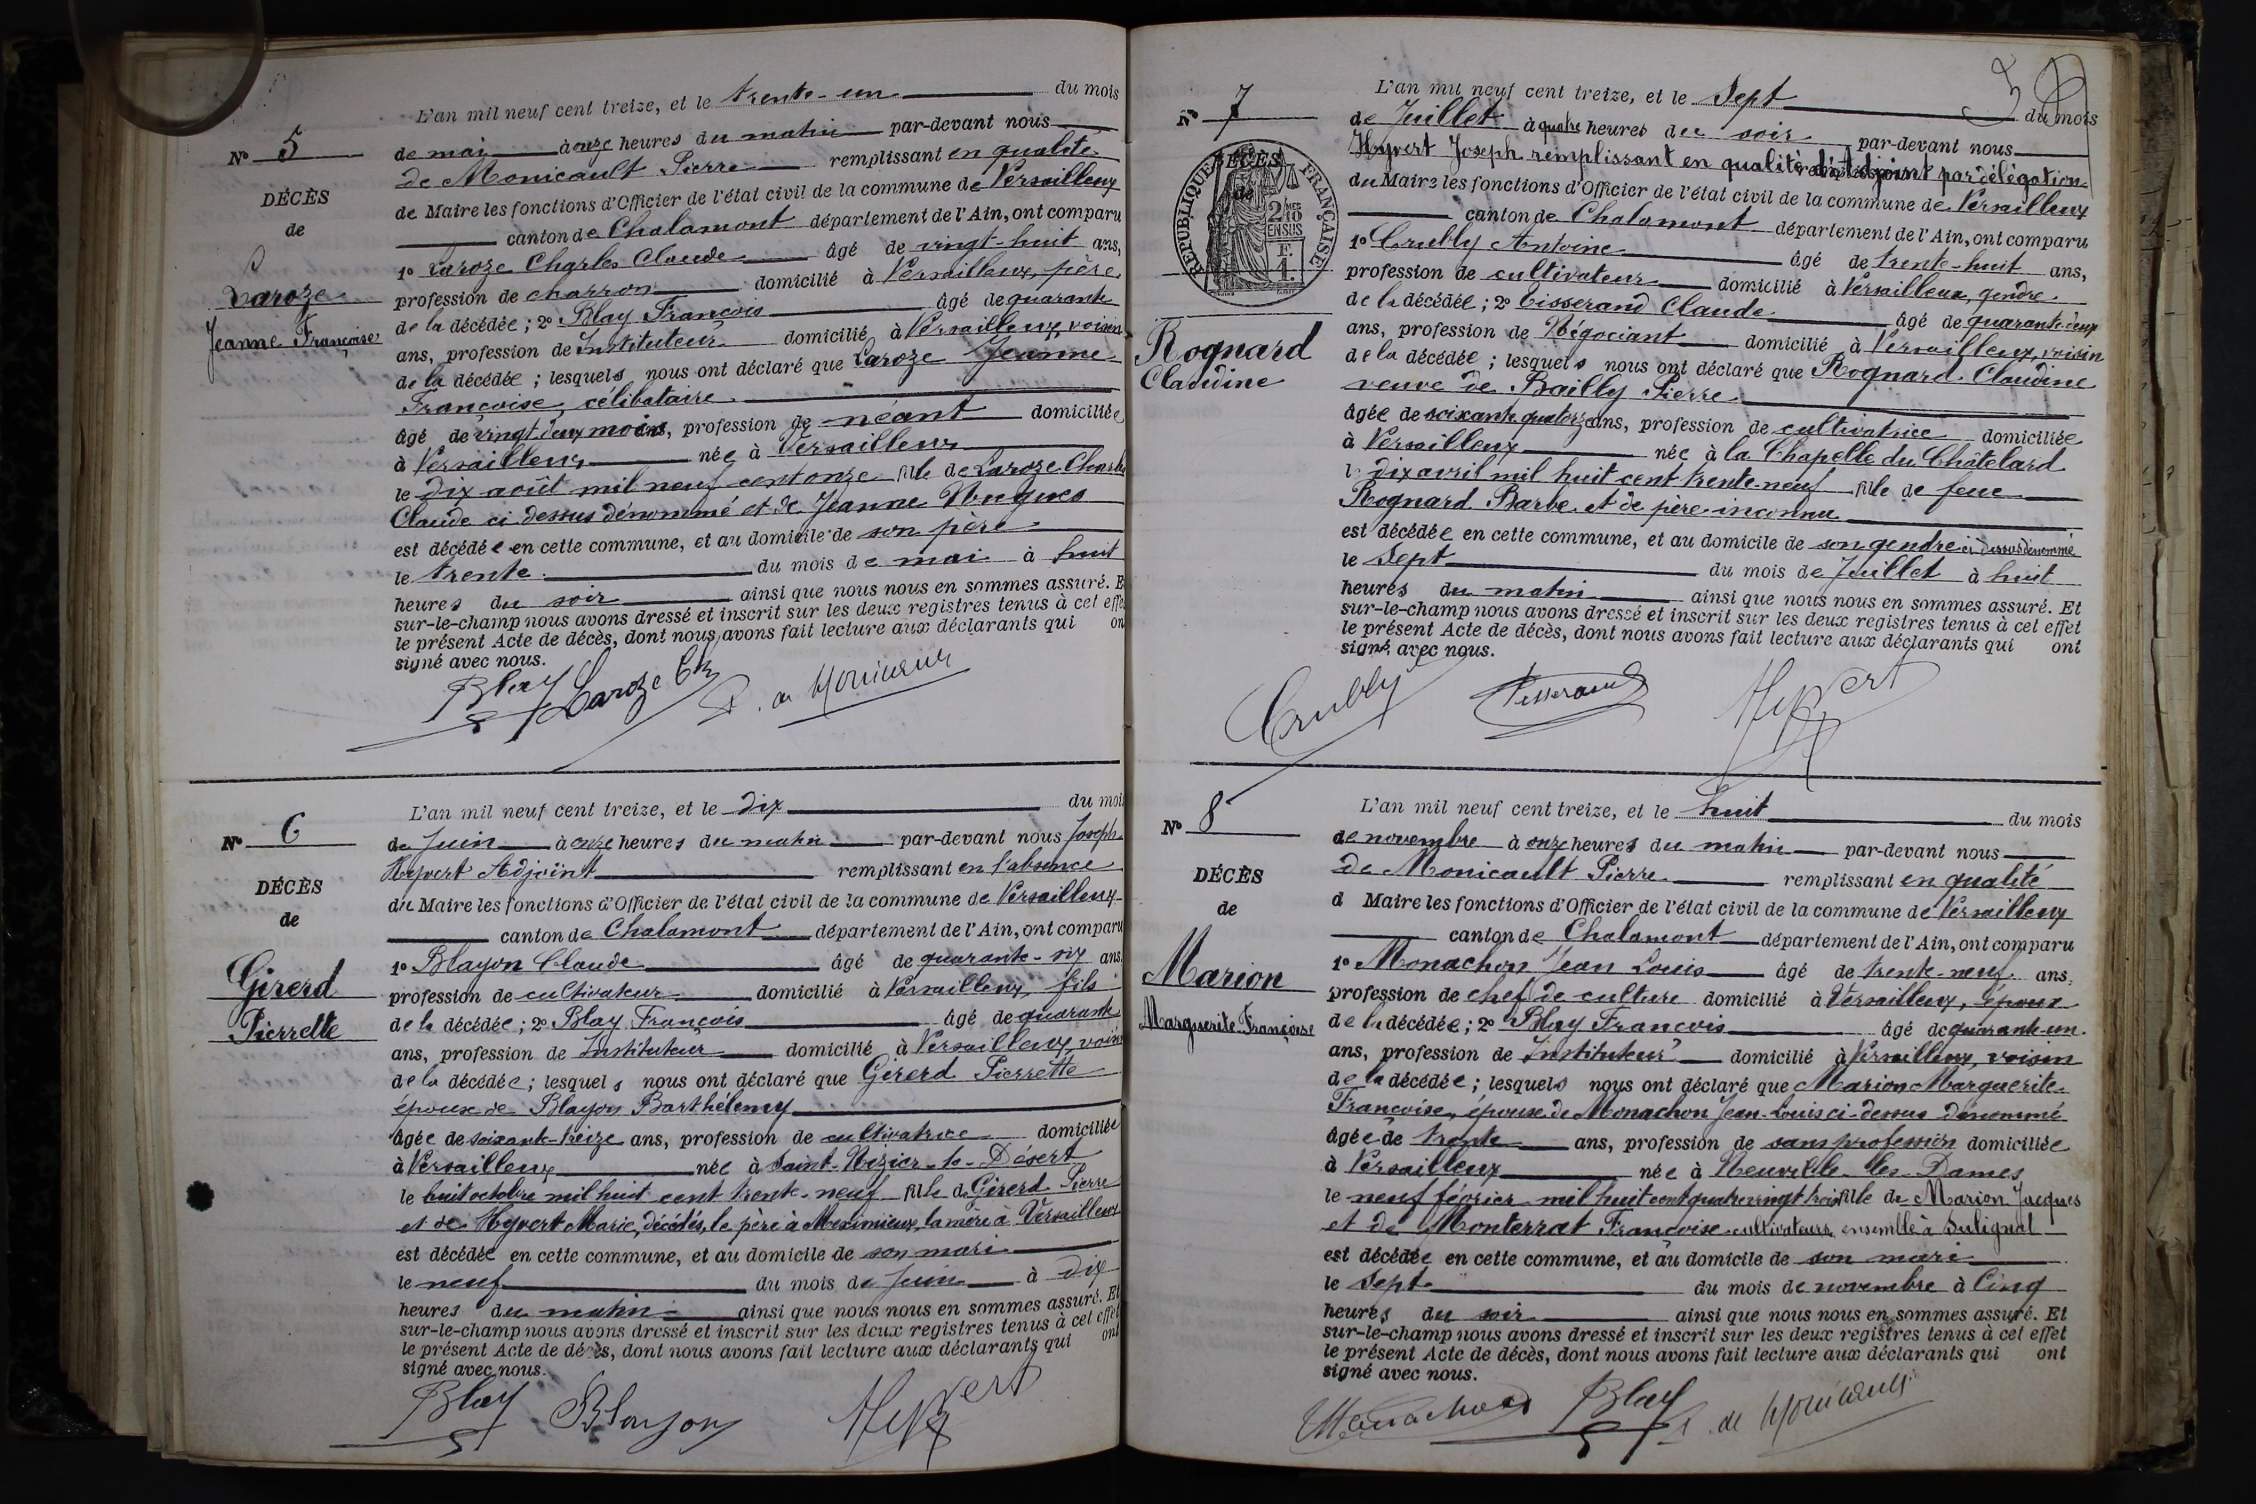 L'an mil neuf cent treize, et le trente-un du mois
N° 5
de mai à onze heures du matin par-devant nous
de Monicault Pierre remplissant en qualité
DÉCÈS
de Maire les fonctions d'Officier de l'état civil de la commune de Versailleux
de
canton de Chalamont département de l'Ain, ont comparu
1° Laroze Charles Claude âgé de vingt-huit ans,
Laroze
profession de charron domicilié à Versailleux, père
de la décédée ; 2° Blay François âgé de quarante
Jeanne Françoise
ans, profession de Instituteur domicilié à Versailleux, voisin
de la décédée ; lesquels nous ont déclaré que Laroze Jeanne
Françoise, célibataire
âgé de vingt deux mois, profession de néant domiciliée
à Versailleux née à Versailleux
le dix août mil neuf cent onze fille de Laroze Charles
Claude ci dessus dénommé et de Jeanne Nugues
est décédée en cette commune, et au domicile de son père
le trente du mois de mai à huit
heures du soir ainsi que nous nous en sommes assuré. Et
sur-le-champ nous avons dressé et inscrit sur les deux registres tenus à cet effet
le présent Acte de décès, dont nous avons fait lecture aux déclarants qui ont
signé avec nous.
Blay Laroze Ch P. de Monicault
L'an mil neuf cent treize, et le dix du mois
N° 6
de Juin à onze heures du matin par-devant nous Joseph
Hyvert Adjoint remplissant en l'absence
DÉCÈS
du Maire les fonctions d'Officier de l'état civil de la commune de Versailleux
de
canton de Chalamont département de l'Ain, ont comparu
1° Blayon Claude âgé de quarante-six ans,
Girerd
profession de cultivateur domicilié à Versailleux, fils
de la décédée ; 2° Blay François âgé de quarante
Pierrette
ans, profession de Instituteur domicilié à Versailleux, voisin
de la décédée ; lesquels nous ont déclaré que Girerd Pierrette
épouse de Blayon Barthélemy
âgée de soixante-treize ans, profession de cultivatrice domiciliée
à Versailleux née à Saint-Nizier-le-Désert
le huit octobre mil huit cent trente-neuf fille de Girerd Pierre
et de Hyvert Marie, décédés, le père à Meximieux, la mère à Versailleux
est décédée en cette commune, et au domicile de son mari
le neuf du mois de Juin à dix
heures du matin ainsi que nous nous en sommes assuré. Et
sur-le-champ nous avons dressé et inscrit sur les deux registres tenus à cet effet
le présent Acte de décès, dont nous avons fait lecture aux déclarants qui ont
signé avec nous.
Blay Blayon Hyvert
L'an mil neuf cent treize, et le Sept du mois
N° 7
de Juillet à quatre heures du soir par-devant nous
Hyvert Joseph remplissant en qualité d'adjoint par délégation
DÉCÈS
de
RÉPUBLIQUE FRANÇAISE
2/10 EN SUS
F.
1.
du Maire les fonctions d'Officier de l'état civil de la commune de Versailleux
canton de Chalamont département de l'Ain, ont comparu
1° Crubly Antoine âgé de trente-huit ans,
profession de cultivateur domicilié à Versailleux, gendre
de la décédée ; 2° Tisserand Claude âgé de quarante-deux
Rognard
ans, profession de Négociant domicilié à Versailleux, voisin
Claudine
de la décédée ; lesquels nous ont déclaré que Rognard Claudine
veuve de Bailly Pierre
âgée de soixante quatorze ans, profession de cultivatrice domiciliée
à Versailleux née à la Chapelle du Châtelard
le dix avril mil huit cent trente-neuf fille de feue
Rognard Barbe et de père inconnu
est décédée en cette commune, et au domicile de son gendre ci dessus dénommé
le Sept du mois de Juillet à huit
heures du matin ainsi que nous nous en sommes assuré. Et
sur-le-champ nous avons dressé et inscrit sur les deux registres tenus à cet effet
le présent Acte de décès, dont nous avons fait lecture aux déclarants qui ont
signé avec nous.
Crubly Tisserand Hyvert
L'an mil neuf cent treize, et le huit du mois
N° 8
de novembre à onze heures du matin par-devant nous
de Monicault Pierre remplissant en qualité
DÉCÈS
d Maire les fonctions d'Officier de l'état civil de la commune de Versailleux
de
canton de Chalamont département de l'Ain, ont comparu
1° Monachon Jean Louis âgé de trente-neuf ans,
Marion
profession de chef de culture domicilié à Versailleux, époux
Marguerite Françoise
de la décédée ; 2° Blay François âgé de quarante-un
ans, profession de Instituteur domicilié à Versailleux, voisin
de la décédée ; lesquels nous ont déclaré que Marion Marguerite
Françoise, épouse de Monachon Jean-Louis ci-dessus dénommé
âgée de trente ans, profession de sans profession domiciliée
à Versailleux née à Neuville-les-Dames
le neuf février mil huit cent quatre vingt trois fille de Marion Jacques
et de Monterrat Françoise cultivateurs ensemble à Sulignat
est décédée en cette commune, et au domicile de son mari
le Sept du mois de novembre à Cinq
heures du soir ainsi que nous nous en sommes assuré. Et
sur-le-champ nous avons dressé et inscrit sur les deux registres tenus à cet effet
le présent Acte de décès, dont nous avons fait lecture aux déclarants qui ont
signé avec nous.
Monachon Blay P. de Monicault